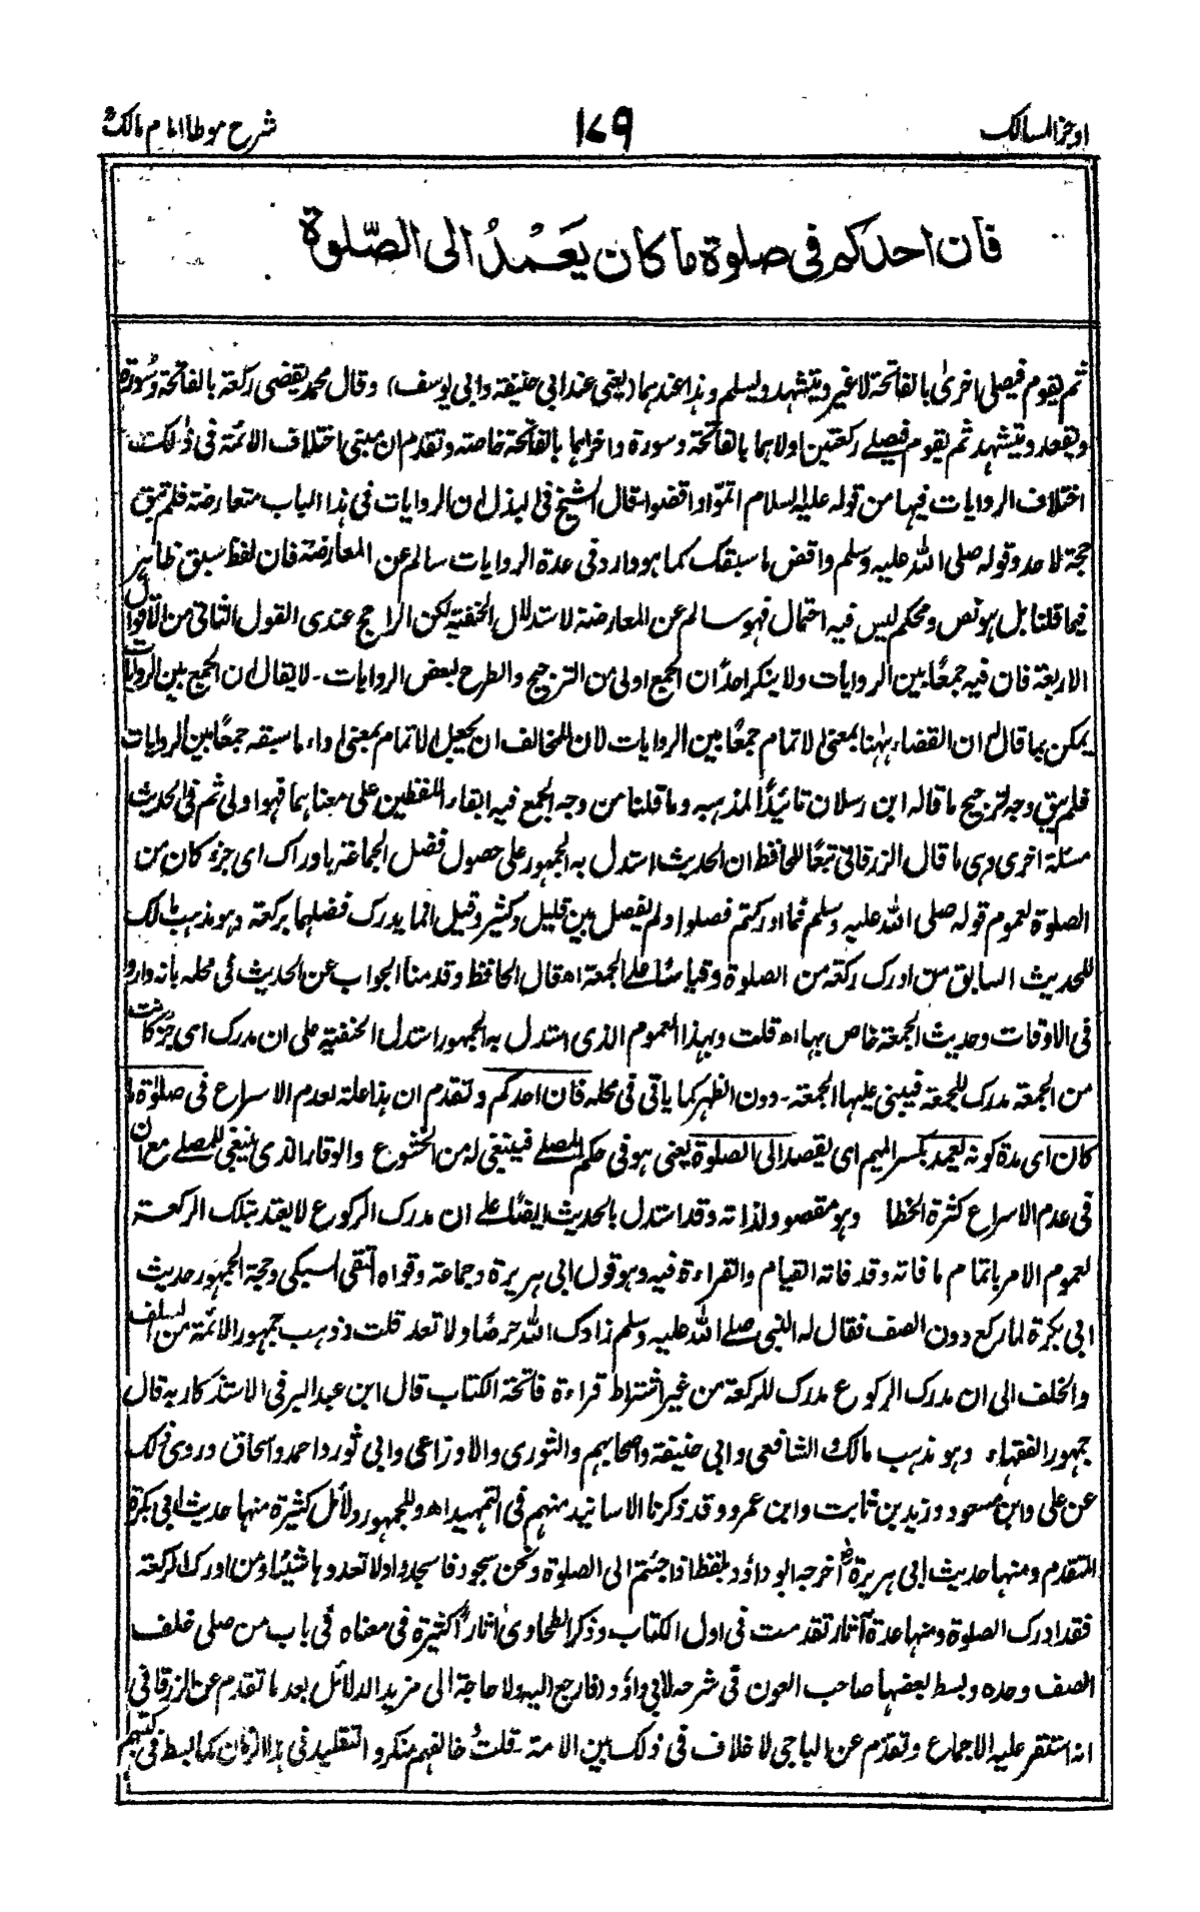 اوجز المسالك
١٧٩
شرح موطا امام مالكؒ
فان احدكم فى صلوة ما كان يَعْمدُ الى الصّلوة
ثم يقوم فيصلى اخرىٰ بالفاتحة لا غير ويتشهد ويسلم وهذا عندهما (يعنى عند ابى حنيفة وابى يوسف) وقال محمد يقضى ركعة بالفاتحة وسورة
ويقعد ويتشهد ثم يقوم فيصلے ركعتين اولاهما بالفاتحة وسورة واخراهما بالفاتحة خاصة وتقدم ان مبنى اختلاف الائمة فى ذلك
اختلاف الروايات فيها من قوله عليه السلام اتموا واقضوا قال الشيخ فى البذل ان الروايات فى هذا الباب متعارضة فلم تبق
حجة لاحد وقوله صلى الله عليه وسلم واقض ما سبقك كما هو دارد فى عدة الروايات سالم عن المعارضة فان لفظ سبق ظاهر
فيما قلنا بل هو نص ومحكم ليس فيه احتمال فهو سالم عن المعارضة لاستدلال الحنفية لكن الراجح عندى القول الثانى من الاقوال
الاربعة فان فيه جمعًا بين الروايات ولا ينكر احد ان الجمع اولى من الترجيح والطرح لبعض الروايات ۔ لا يقال ان الجمع بين الروايات
يمكن بما قال ان القضاء ههنا بمعنى الاتمام جمعًا بين الروايات لان للمخالف ان يجعل الاتمام بمعنى اداء ما سبقه جمعًا بين الروايات
فلم يبق وجه لترجيح ما قاله ابن رسلان تائيدًا لمذهبه وما قلنا من وجه الجمع فيه ابقاء اللفظين على معناهما فهو اولى ثم فى الحديث
مسئلة اخرى وهى ما قال الزرقانى تبعًا للحافظ ان الحديث استدل به الجمهور على حصول فضل الجماعة بادراك اى جزء كان من
الصلوة لعموم قوله صلى الله عليه وسلم فما ادركتم فصلوا ولم يفصل بين قليل وكثير وقيل انما يدرك فضلها بركعة وهو مذهب مالك
للحديث السابق من ادرك ركعة من الصلوة وقياسا على الجمعة اه قال الحافظ وقدمنا الجواب عن الحديث فى محله بانه وارد
فى الاوقات وحديث الجمعة خاص بها اه قلت وبهذا العموم الذى استدل به الجمهور استدل الحنفية على ان مدرك اى جزء كانت
من الجمعة مدرك للجمعة فيبنى عليها الجمعة ۔ دون الظهر كما ياتى فى محله فان احدكم وتقدم ان هذا علة لعدم الاسراع فى صلوٰة ما
كان اى مدة كونه يعمد بكسر الميم اى يقصد الى الصلوة يعنى هو فى حكم المصلے فينبغى له من الخشوع والوقار الذى ينبغى للمصلے مع ان
فى عدم الاسراع كثرة الخطا وهو مقصود لذاته وقد استدل بالحديث ايضًا على ان مدرك الركوع لا يعتد بتلك الركعة
لعموم الامر باتمام ما فاته وقد فاته القيام والقراءة فيه وهو قول ابى هريرة وجماعة وقواه التقى السبكى وحجة الجمهور حديث
ابى بكرة لما ركع دون الصف فقال له النبى صلے الله عليه وسلم زادك الله حرصًا ولا تعد قلت وذهب جمهور الائمة من السلف
والخلف الى ان مدرك الركوع مدرك للركعة من غير اشتراط قراءة فاتحة الكتاب قال ابن عبد البر فى الاستذكار به قال
جمهور الفقهاء وهو مذهب مالك والشافعى وابى حنيفة واصحابهم والثورى والاوزاعى وابى ثور واحمد واسحاق وروى ذلك
عن على وابن مسعود وزيد بن ثابت وابن عمر وقد ذكرنا الاسانيد منهم فى التمهيد اه وللجمهور دلائل كثيرة منها حديث ابى بكرة
المتقدم ومنها حديث ابى هريرةؓ اخرجه ابو داؤد بلفظ اذا جئتم الى الصلوة ونحن سجود فاسجدوا ولا تعدوها شيئا ومن ادرك الركعة
فقد ادرك الصلوة ومنها عدة آثار تقدمت فى اول الكتاب وذكر الطحاوى آثارًا كثيرة فى معناه فى باب من صلى خلف
الصف وحده وبسط بعضها صاحب العون فى شرحه لابى داؤد (فارجع اليه ولا حاجة الى مزيد الدلائل بعد ما تقدم عن الزرقانى
انه استقر عليه الاجماع وتقدم عن الباجى لا خلاف فى ذلك بين الامة ۔ قلتُ خالفهم منكروا التقليد فى هذا الزمان كما بسط فى كتبهم